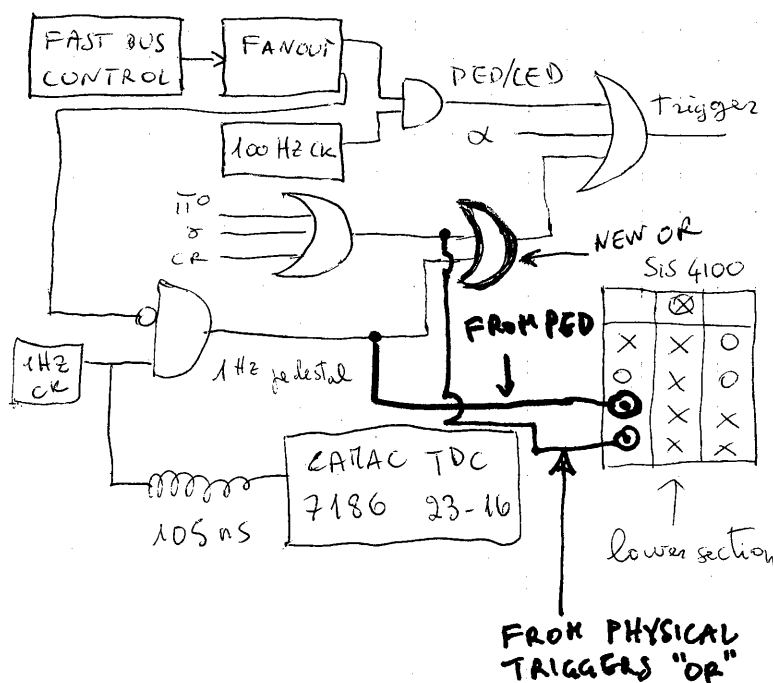 FAST BUS
CONTROL
FANOUT
PED/LED
Trigger
α
100 HZ CK
π°
γ
CR
NEW OR
SiS 4100
⊗
X X O
O X O
O X X
O X X
FROM PED
1HZ
CK
1Hz pedestal
CAMAC TDC
7186 23-16
105 ns
lower section
FROM PHYSICAL
TRIGGERS "OR"